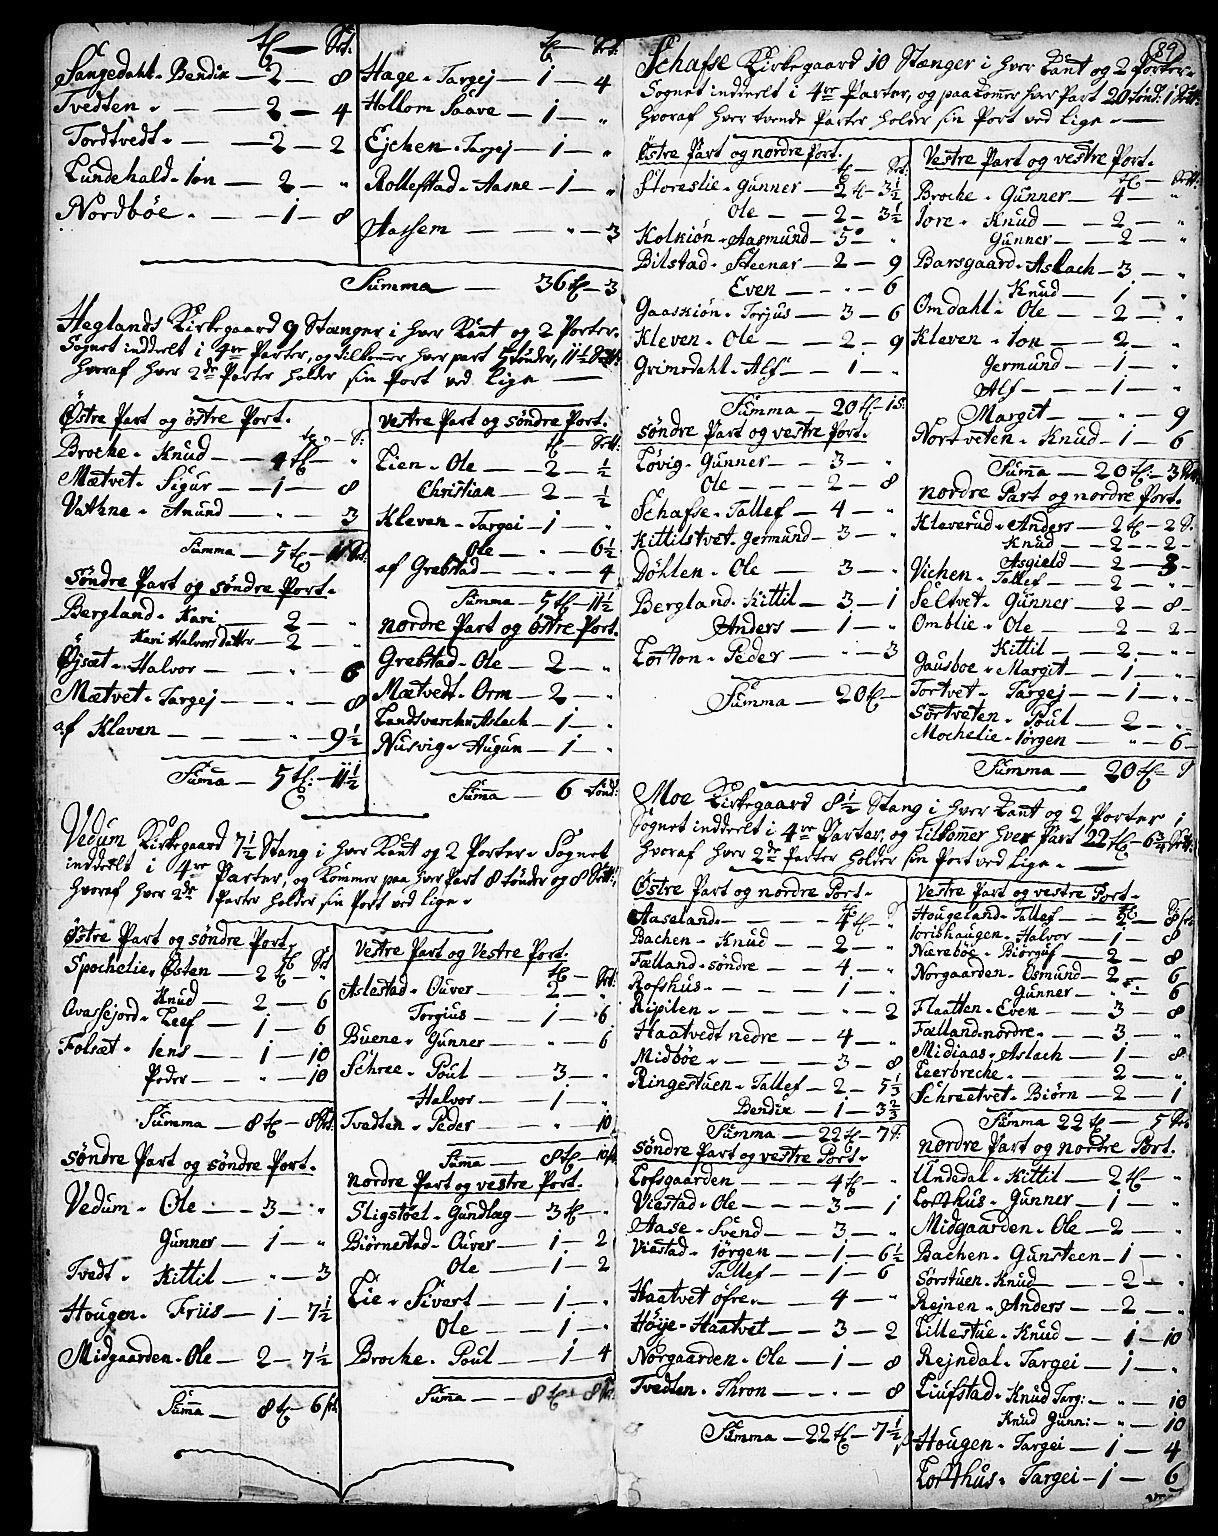 tħ — Sk:
Langedahl. Bendix — 2 — 8
Tvedten. — — 2 — 4
Tordtvedt. — — 2 — 2
Lundehald. Ion — 2 — "
Nordbøe. — — 1 — 8
Hage. Targej — 1 — 4
Hollom Saave — 1 — "
Ejchen. Targej — 1 — "
Rollefstad. Aasne — 1 — "
Aassem — — " — 3
Summa — 36 tħ — 3
Heglands Kirkegaard 9 Stænger i hver Kant og 2 Porter.
Sognet inddeelt i 4re Parter, og tilkommer hver part 5 tønder, 11½ Sett:
hvoraf hver 2de Parter holder sin Port ved lige —
Østre Part og østre Port.
Broche. Knud — 4 tħ — "
Mætvet. Sigur — 1 — 8
Vathne. Anund — " — 3
Summa — 5 tħ — 11 Sk:
Søndre Part og søndre Port.
Bergland. Kari — 2 — "
Kari Halvorsdatter — 2 — "
Øysæt. Halvor — " — 6
Mætvet. Targej — " — 8
af Kleven — — " — 9½
Suma — 5 tħ: — 11½
Vestre Part og søndre Port.
Lien. Ole — 2 — ½
Christian — 2 — ½
Kleven. Targei — 1 — "
Ole — " — 6½
af Grebstad — " — 4
Summa — 5 tħ — 11½
Nordre Part og Østre Port.
Grebstad. Ole — 2 — "
Mætvedt. Orm — 2 — "
Landsverchn. Aslach — 1 — "
Nusvig. Augun — 1 — "
Suma — 6 tønd:
Vedum Kirkegaard 7½ Stang i hver Kant og 2 Porter. Sognet
inddeelt i 4re Parter, og kommer paa hver Part 8 tønder og 8 Sett:,
hvoraf hver 2de Parter holder sin Port ved lige.
Østre Part og søndre Port.
Spochelie. Østen — 2 tħ — "
Knud — 2 — 6
Qvassejord. Leef — 1 — 6
Folsæt. Iens — 1 — 10
Peder — " — 10
Summa — 8 tħ — 8 Sk:
Søndre Part og søndre Port.
Vedum. Ole — 3 — "
Gunner — 1 — "
Tvedt. Kittil — " — 3
Hougen. Friis — 1 — 7½
Midgaarden. Ole — 2 — 7½
Suma — 8 tħ — 6 sk
Vestre Part og Vestre Port.
Aslestad. Ouver — 2 — "
Torgius — 1 — 6
Buene. Gunner — " — 6
Schree. Poul — 3 — "
Halvor — 1 — "
Tvedten. Peder — " — 10
Suma — 8 tħ — 10 sk
Nordre Part og vestre Port.
Sligstøel. Gundlæg — 3 tħ — "
Biørnestad. Ouver — 1 — 2
Ole — 1 — 2
Lie. Sivert — 1 — "
Ole — 1 — "
Broche. Poul — 1 — 4
Suma — 8 tħ — 8 sk
89
Schafse Kirkegaard 10 Stænger i hver Kant og 2 Porter.
Sognet inddeelt i 4re Parter, og paakommer hver Part 20 tønd: 1 Sett:
hvoraf hver tvende Parter holder sin Port ved lige. —
Østre Part og nordre Port.
Storeslie. Gunner — 2 tħ — 3½
Ole — 2 — 3½
Kolkiøn. Aasmund — 5 — "
Bilstad. Steenar — 2 — 9
Even — " — 6
Gaaskiøn. Torjus — 3 — 6
Kleven. Ole — 2 — 9
Grimsdahl. Alf — 1 — "
Summa — 20 tħ — 1 S:
Søndre Part og vestre Port.
Løvig. Gunner — 3 — "
Ole — 2 — 8
Schafse. Tallef — 4 — "
Kittilstvet. Germund — 3 — "
Døhlen. Ole — 3 — "
Bergland. Kittil — 3 — 1
Anders — 1 — "
Lofton. Peder — " — 3
Summa — 20 tħ —
Vestre Part og vestre Port.
Broche. Gunner — 4 — "
Iore. Knud — 2 — "
Gunner — 2 — "
Barsgaard. Aslach — 3 — "
Knud — 1 — "
Omdahl. Ole — 2 — "
Kleven. Ion — 2 — "
Germund — 1 — "
Alf — 1 — "
Margit — " — 9
Nortveten. Knud — 1 — 6
Suma — 20 tħ — 3 Sk
Nordre Part og nordre Port.
Kleverud. Anders — 2 tħ — 2 S.
Knud — 2 — 2
Vichen. Asgield — 2 — 3
Tallef — 2 — "
Seltvet. Gunner — 2 — 8
Omblie. Ole — 2 — 2
Kittil — 2 — "
Gausboe. Margit — 1 — "
Tortvet. Targej — 1 — "
Sortveten. Poul — 2 — "
Mochelie. Iørgen — " — 6
Summa — 20 tħ — 9
Moe Kirkegaard 8½ Stang i hver Kant og 2 Porter;
Sognet inddeelt i 4re Parter, og tilkomer hver Part 22 tħ — 6¾ Sett:
hvoraf hver 2de Parter holder sin Port ved lige. —
Østre Part og nordre Port.
Aaseland. — — 4 tħ — "
Bachen. Knud — 2 — "
Fælland. søndre — 4 — "
Rofshus. — — 1 — "
Ripilen. — — " — 2
Haatvedt nedre — 4 — "
Midbøe. — — 3 — 8
Ringestuen. Tallef — 2 — 5⅓
Bendix — 1 — 3⅔
Summa — 22 tħ — 7 S.
Søndre Part og vestre Port.
Lofsgaarden — — 4 tħ — "
Viestad. Ole — 3 — 1
Aase. Svend — 3 — "
Viestad. Iørgen — 1 — 6½
Tallef — 1 — 6
Haatvet øfre. — 4 — "
Høye. Haatvet — 3 — 2
Norgaarden. Ole — 1 — 8
Tvedten. Thron — " — 8
Summa — 22 tħ — 7½
Vestre Part og vestre Port.
Hougeland. Tallef — 5 — 8
Iorishaugen. Halvor — 1 — 8
Nærebøe. Biørguf — 2 — 8
Norgaarden. Esmund — 2 — 6
Gunner — " — 6
Flaatten. Even — 3 — 8
Fælland. nordre. — 3 — "
Midiaas. Aslach — 1 — 8
Leerbreche. — 2 — "
Schreetvet. Biørn — 2 — 1
Summa 22 tħ — 5 Sk
Nordre Part og nordre Port.
Undedal. Kittil — 2 tħ — "
Lofthus. Gunner — 1 — "
Midgaarden. Ole — 2 — "
Bachen. Gunsteen — 1 — "
Sørstuen. Knud — 2 — "
Rejnen. Anders — 2 — "
Lillestue. Knud — 1 — 10
Rejndal. Targei — 1 — "
Liufstad. Knud Targ: — " — 10
Knud Gunn: — " — 10
Hougen. Targei — 1 — 4
Lofthus. Targei — 1 — 6